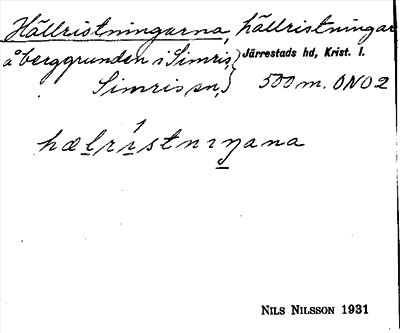 Hällristningarna, hällristningar
å berggrunden i Simris, } Järrestads hd, Krist. l.
Simris sn, } 500 m. ONO 2
hælrístnıŋana
NILS NILSSON 1931